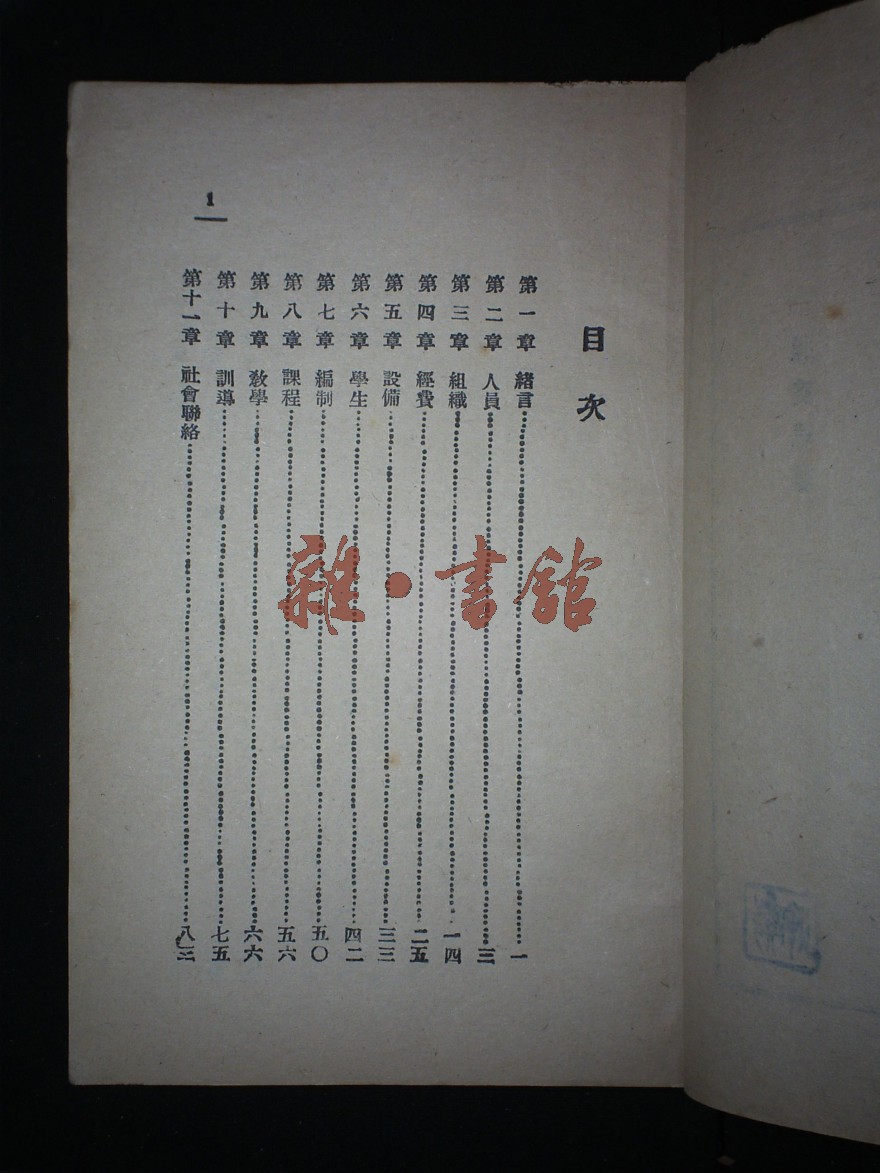 目次
第一章 緒言 一
第二章 人員 三
第三章 組織 一四
第四章 經費 二五
第五章 設備 三三
第六章 學生 四二
第七章 編制 五〇
第八章 課程 五六
第九章 教學 六六
第十章 訓導 七五
第十一章 社會聯絡 八三
1
雜·書館